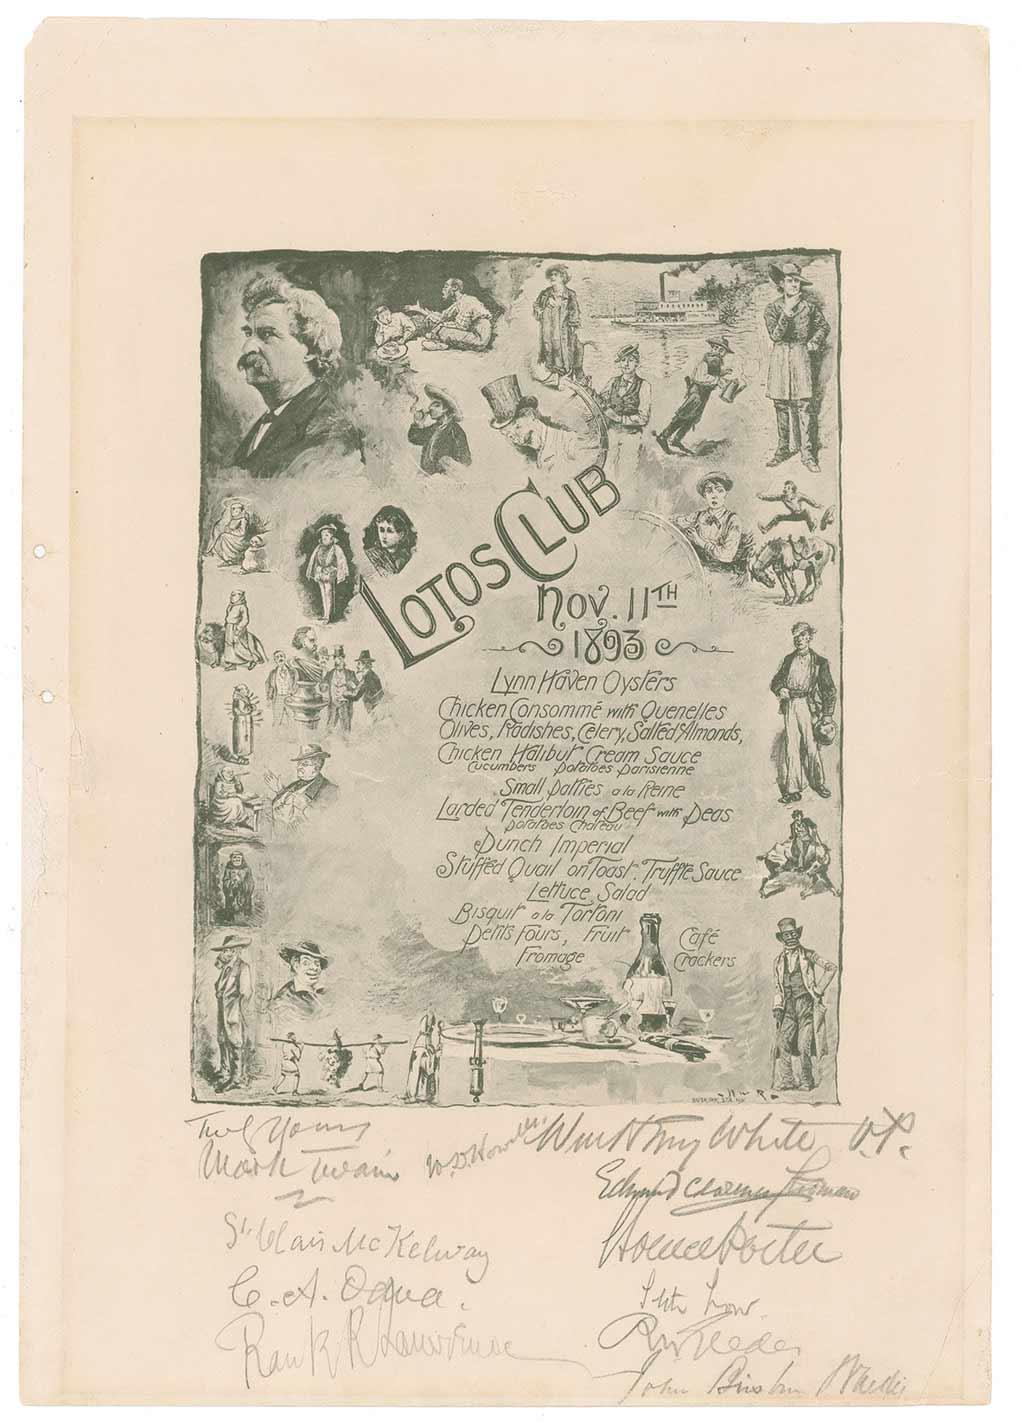 LOTOS CLUB
Nov. 11TH
1893
Lynn Haven Oysters
Chicken Consommé with Quenelles
Olives, Radishes, Celery, Salted Almonds,
Chicken Halibut Cream Sauce
Cucumbers Potatoes Parisienne
Small patties a la Reine
Larded Tenderloin of Beef with Peas
Potatoes Chateau
Punch Imperial
Stuffed Quail on Toast. Truffle Sauce
Lettuce Salad
Bisquit a la Tortoni
Petits Fours, Fruit Café
Fromage Crackers
Truly Yours
Mark Twain W.D. Howells. White V.P.
Edmund Clarence Stedman
St Clair McKelway Horace Porter
C. A. Dana. Seth Low.
Frank R Lawrence
John